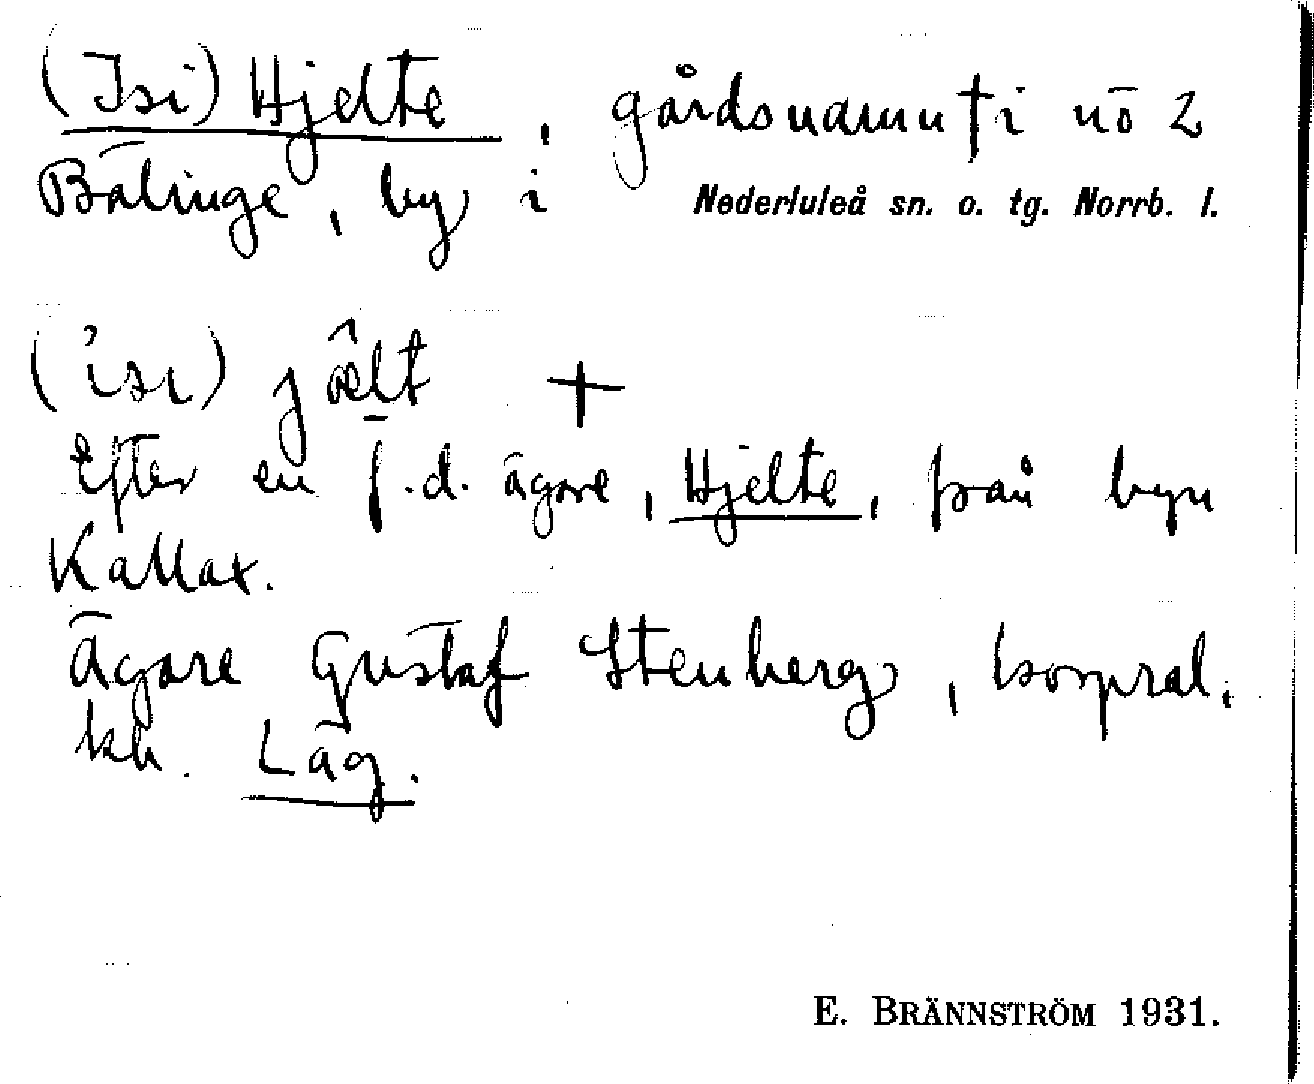 (Isi) Hjelte, gårdsnamn † i nō 2
Bälinge, by i Nederluleå sn. o. tg. Norrb. l.
( isı) jæ̂lt +
Efter en f.d. ägare, Hjelte, från byn
Kallax.
Ägare Gustaf Stenberg, korpral.
kh. Läg.
E. BRÄNNSTRÖM 1931.